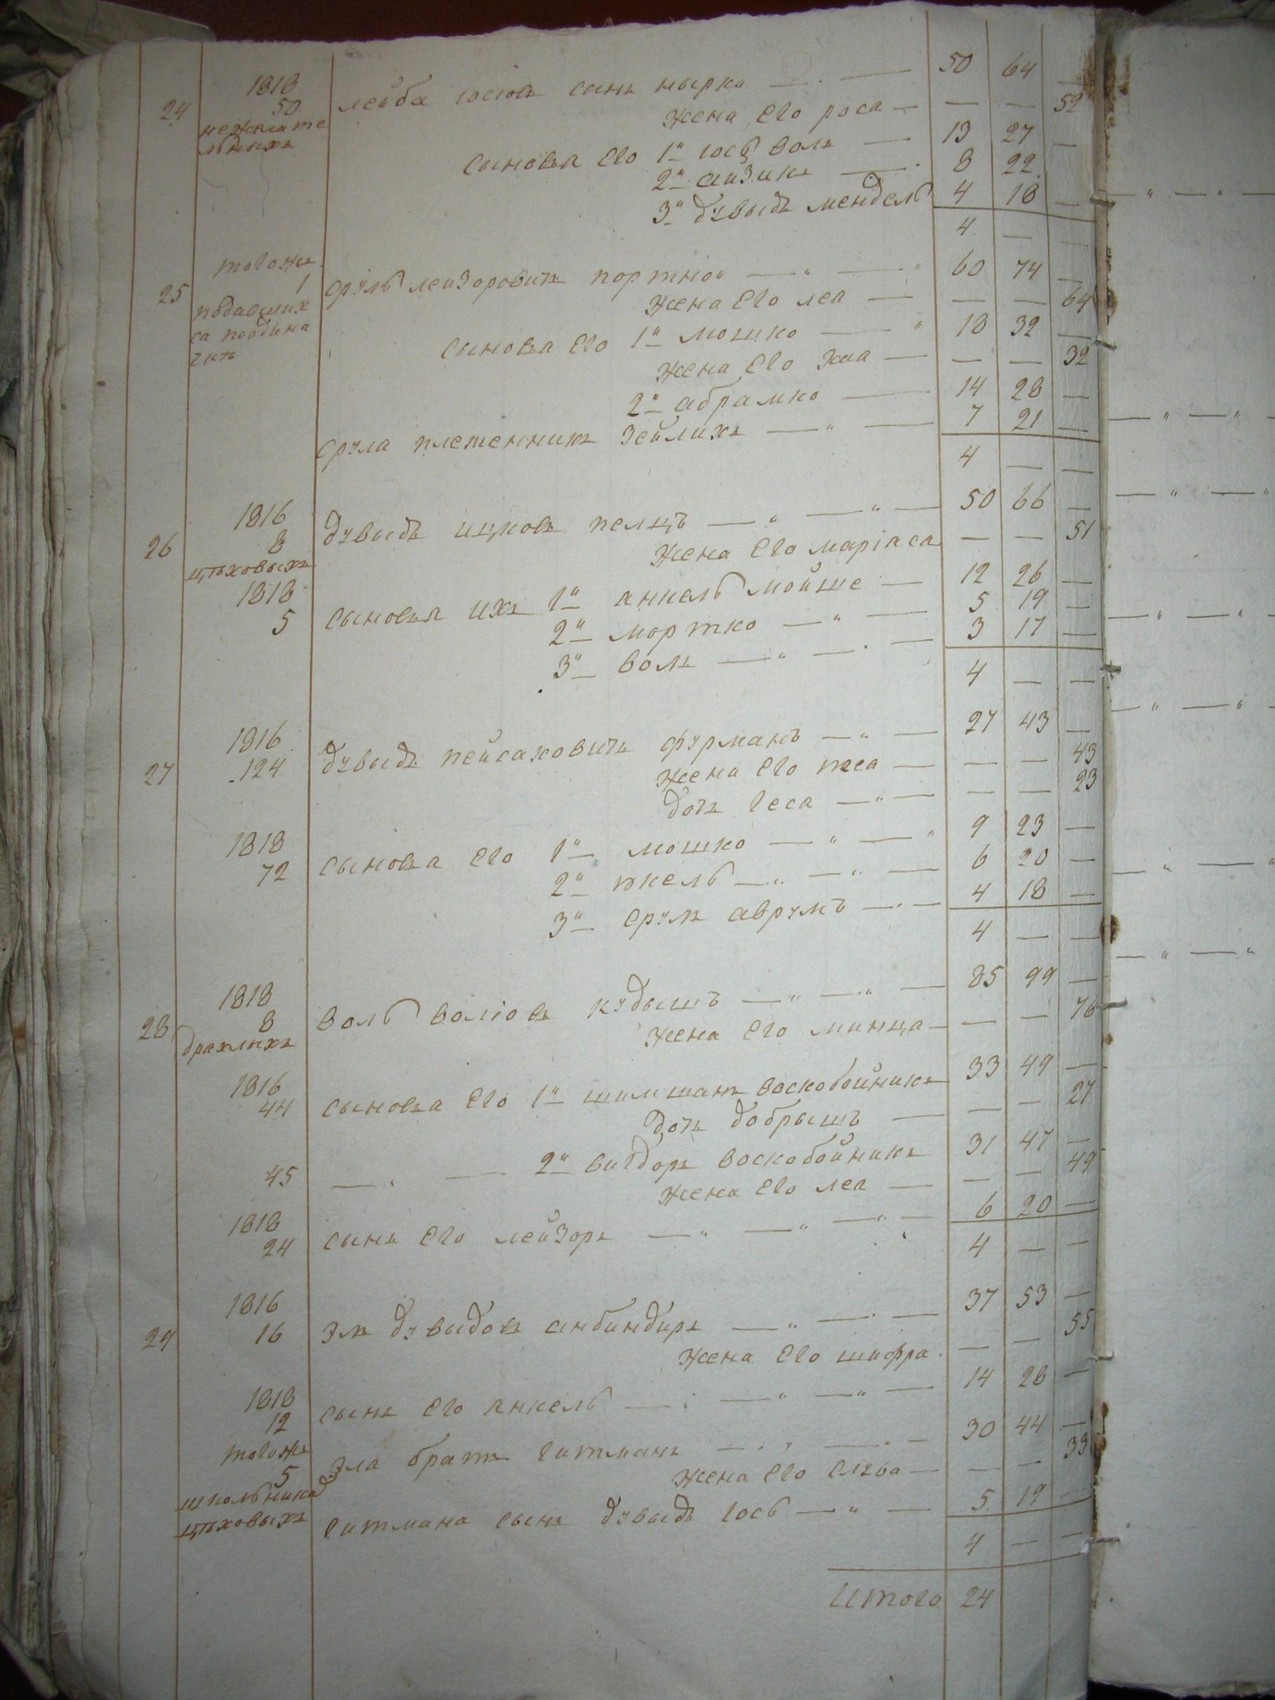 1818
24 50 лейба іосіовъ сынъ нырка — 50 64 —
нежелате Жена Его роса — — — 52
льныхъ
сыновья его 1й іось волъ — 13 27 —
2й айзикъ — 8 22
3й дувыдъ мендель 4 18 —
4 — —
тогоже
25 1 сруль лейзоровичъ портной — 60 74 —
подавших Жена Его леа — — — 64
са поодина
чкъ
сыновья Его 1й мошко — 18 32 —
Жена Его хиа — — — 32
2й абрамко — 14 28 —
сруля племенникъ Зейлихъ — 7 21 —
4 — —
1816
26 8 дувыдъ ицковъ пелцъ — 50 66 —
цѣховыхъ Жена Его маріаса — — 51
1818
5 сыновья ихъ 1й анкель мойше — 12 26 —
2й мортко — 5 19 —
3й волъ — 3 17 —
4 — —
1816
27 124 дувыдъ пейсаховичъ фурманъ — 27 43 —
Жена Его песа — — — 43
дочь геса — — — 23
1818
72 сыновья Его 1й мошко — 9 23 —
2й икель — 6 20 —
3й срулъ аврумъ — 4 18 —
4 — —
1818
28 8 воль воліовъ кудышъ — 85 99 —
дряхлыхъ Жена Его минца — — — 76
1816
44 сыновья Его 1й шимшанъ воскобойникъ 33 49 —
дочь добрышъ — — — 27
45 — 2й вигдоръ воскобойникъ 31 47 —
Жена Его леа — — — 49
1818
24 сынъ Его лейзоръ — 6 20 —
4 — —
1816
29 16 Эль дувыдовъ анбиндиръ — 37 53 —
Жена Его шифра — — 55
1818
12 сынъ Его янкель — 14 28 —
тогоже
5 Эля братъ гитманъ — 30 44 —
школьников Жена Его слува — — — 33
цѣховыхъ гитмана сынъ дувыдъ іось — 5 19 —
4 — —
Итого 24